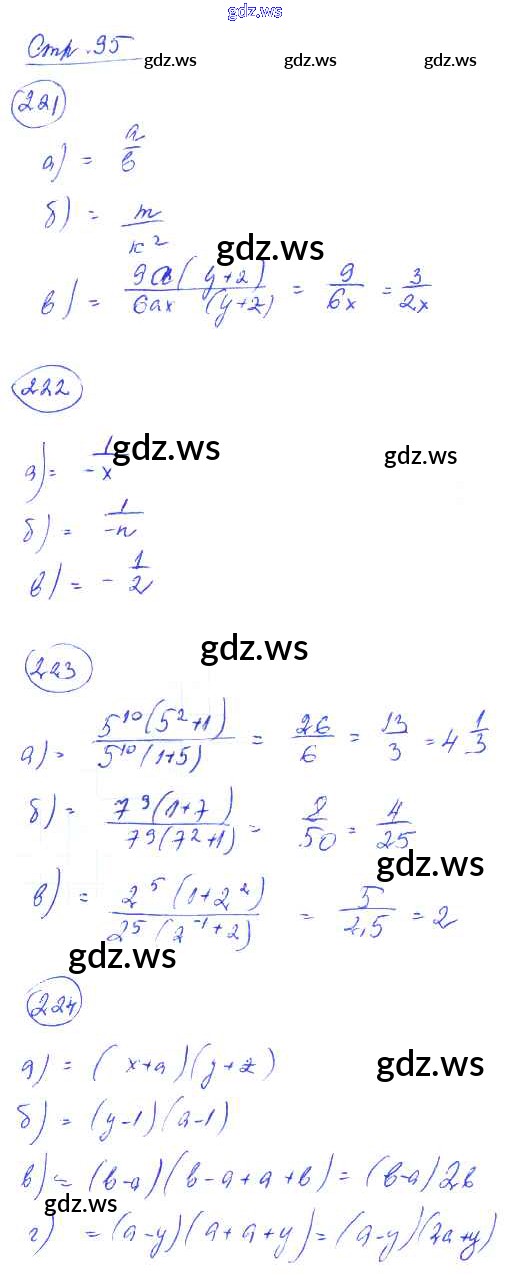 gdz.ws
Стр. 95
gdz.ws gdz.ws gdz.ws
221
а) = a/b
б) = m/k²
gdz.ws
в) = 9a(y+z)/6ax(y+z) = 9/6x = 3/2x
222
gdz.ws
gdz.ws
а) = 1/-x
б) = 1/-n
в) = - 1/2
gdz.ws
223
а) = 5¹⁰(5²+1)/5¹⁰(1+5) = 26/6 = 13/3 = 4 1/3
б) = 7⁹(1+7)/7⁹(7²+1) = 8/50 = 4/25
gdz.ws
в) = 2⁵(1+2²)/2⁵(2⁻¹+2) = 5/2,5 = 2
gdz.ws
224
а) = (x+a)(y+z)
gdz.ws
б) = (y-1)(a-1)
в) = (b-a)(b-a+a+b) = (b-a)2b
gdz.ws
г) = (a-y)(a+a+y) = (a-y)(2a+y)